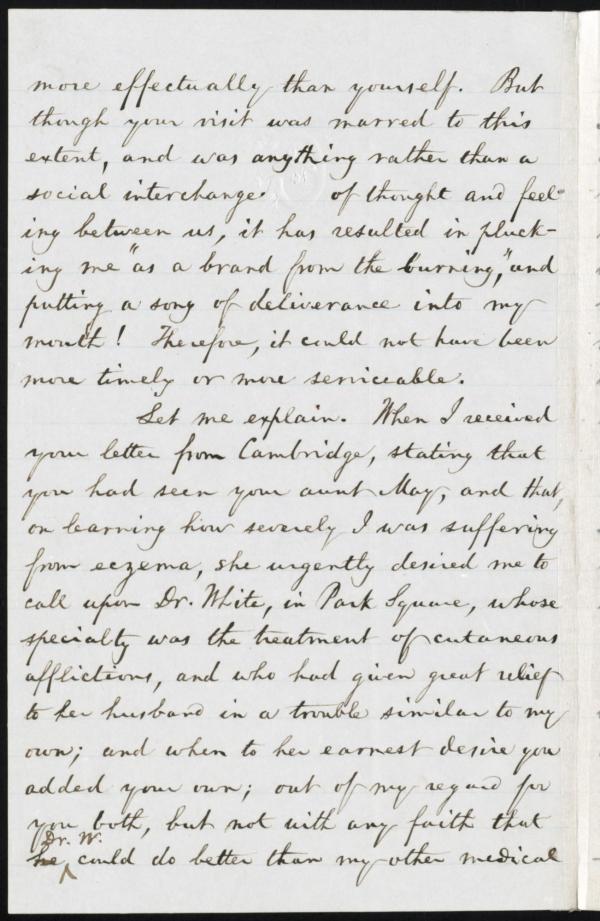 more effectually than yourself. But
though your visit was marred to this
extent, and was anything rather than a
social interchange of thought and feel-
ing between us, it has resulted in pluck-
ing me "as a brand from the burning," and
putting a song of deliverance into my
mouth! Therefore, it could not have been
more timely or more serviceable.
Let me explain. When I received
your letter from Cambridge, stating that
you had seen your aunt May, and that,
on learning how severely I was suffering
from eczema, she urgently desired me to
call upon Dr. White, in Park Square, whose
specialty was the treatment of cutaneous
afflictions, and who had given great relief
to her husband in a trouble similar to my
own; and when to her earnest desire you
added your own; out of my regard for
you both, but not with any faith that
Dr. W.
he could do better than my other medical